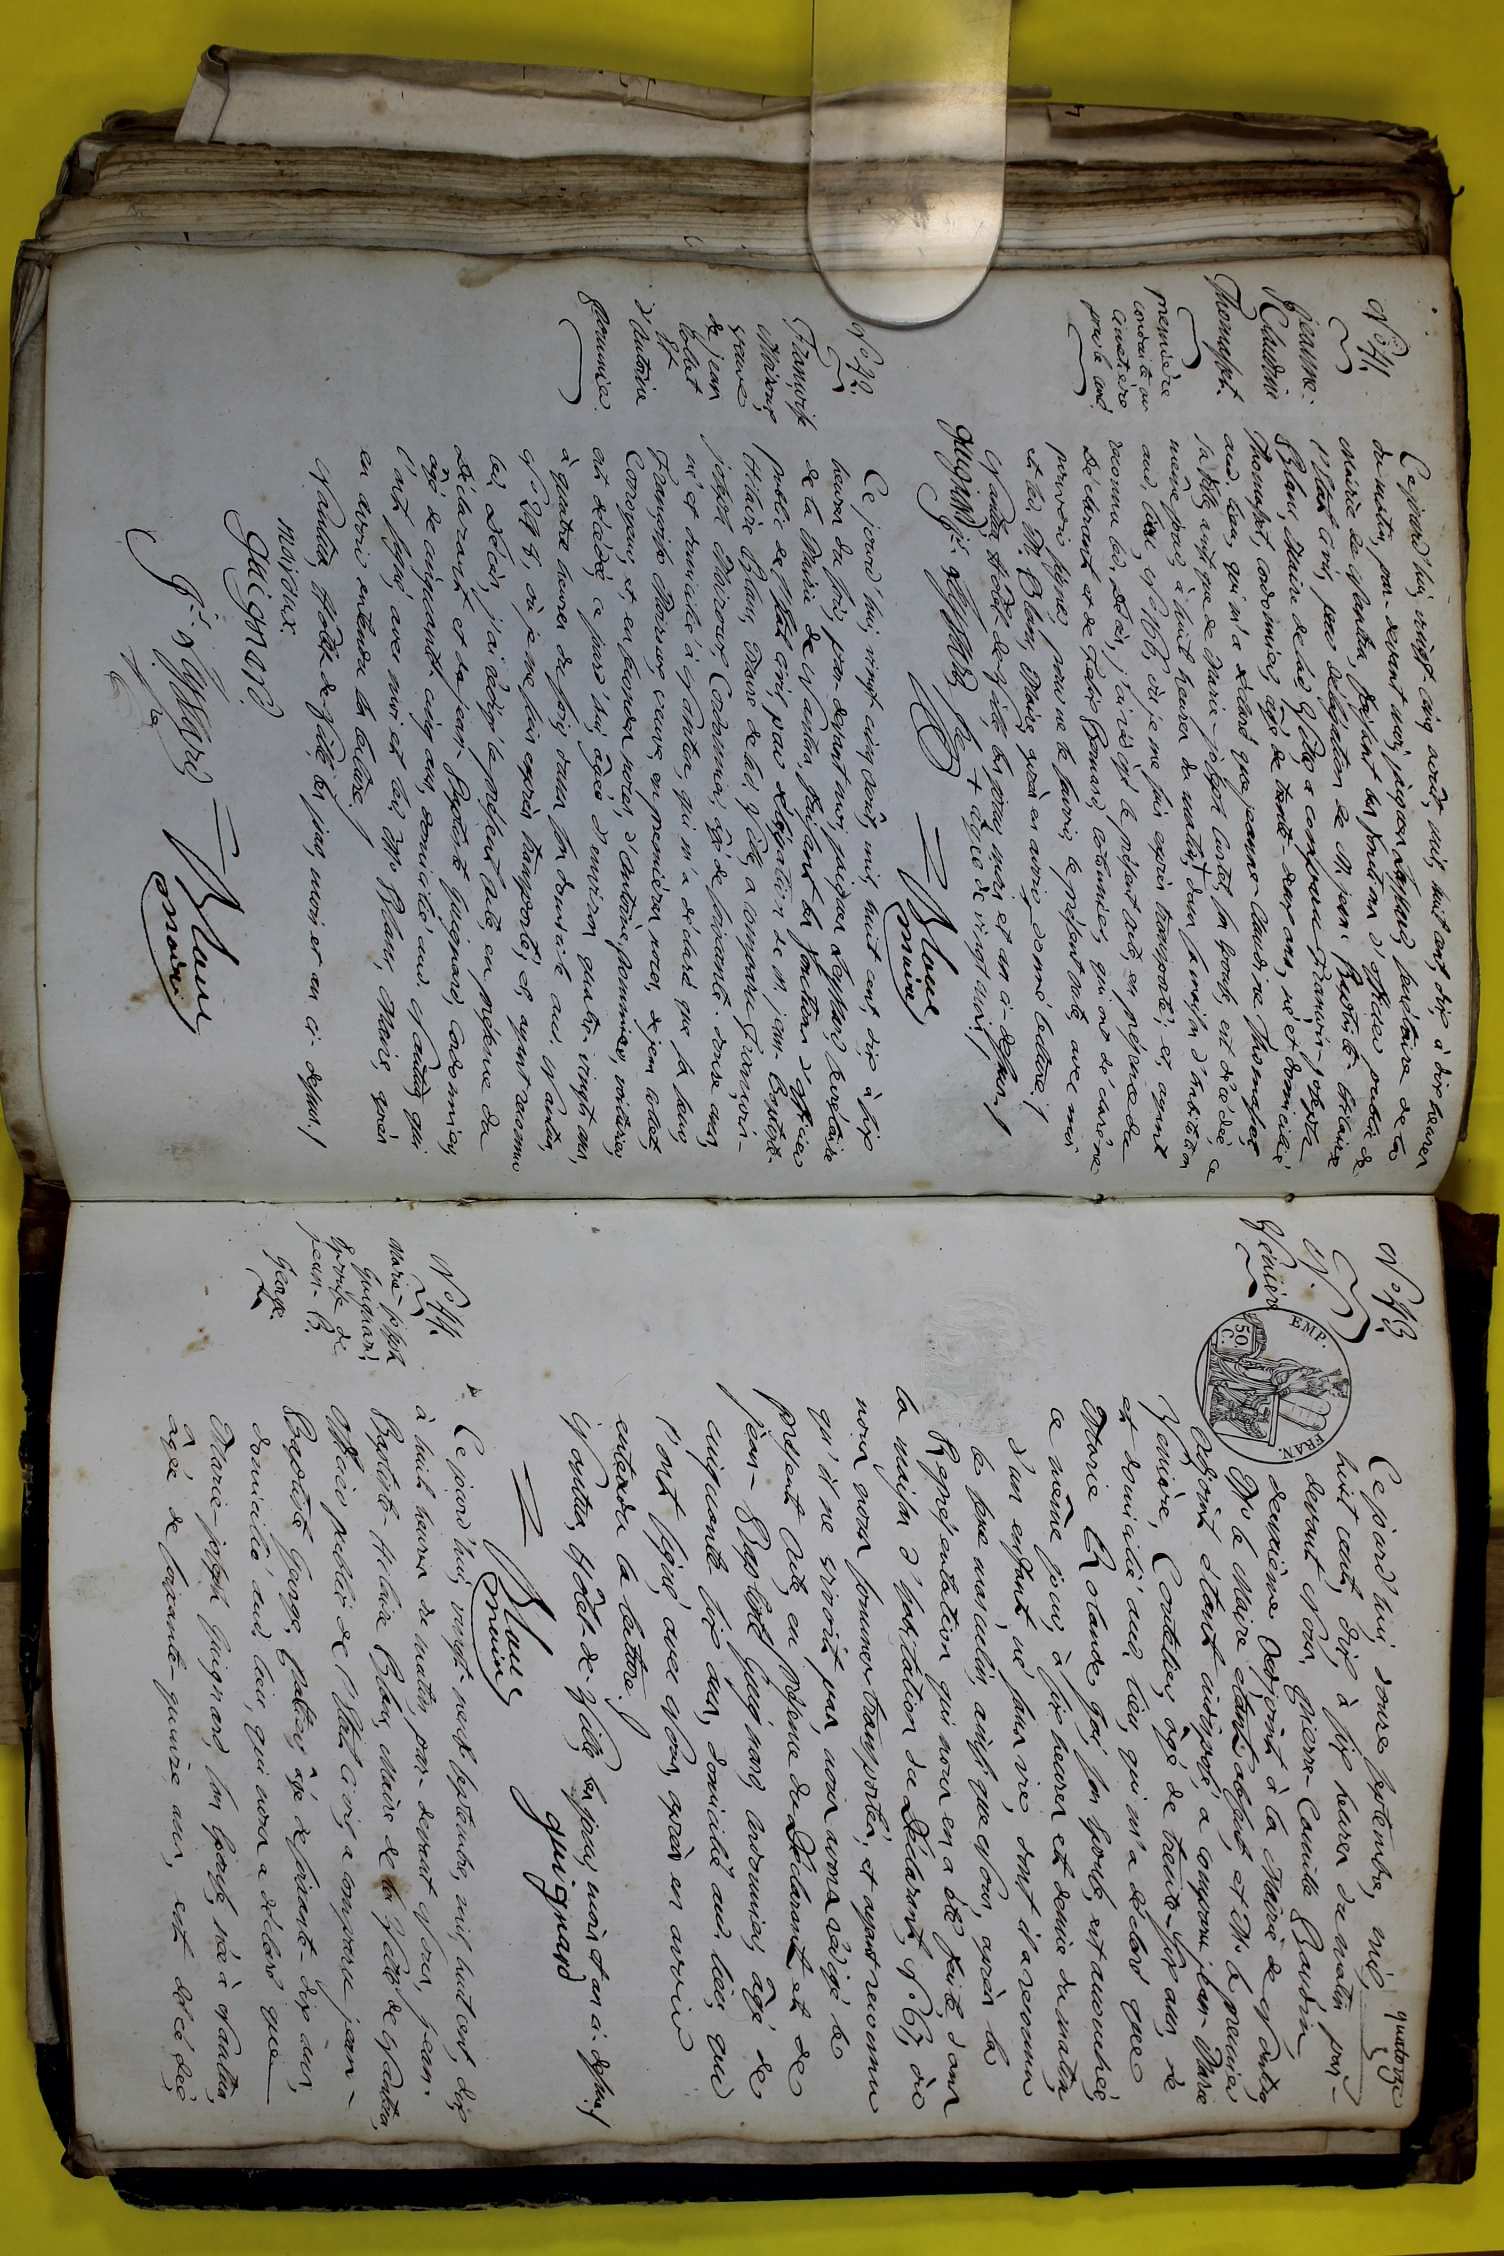 N.o 41.
jeanne
Claudine
Thomasset.
première
conduite au
cimetière
par le curé
Ce jourd'hui, vingt-cinq août, mil, huit cent, dix à dix heures
du matin, par-devant moi, secrétaire de la
mairie de Nantua, faisant les fonctions d'officier public de
l'état civil, par délégation de M. jean-Baptiste hilaire
Blanc, Maire de lad. Ville, a comparu françois-joseph
Thomasset, cordonnier, âgé de trente-deux ans, né et domicilié
aud. lieu, qui m'a déclaré que jeanne-Claudine Thomasset
sa fille, et de Marie-joseph son épouse, est décédée, ce
même jour, à huit heures du matin, + dans sa maison d'habitation
aud. lieu, où je me suis exprès transporté; et, ayant
reconnu led. Décès, j'ai rédigé le présent acte, en présence du
Déclarant et de
pouvoir signer, pour ne le savoir, le présent acte, avec moi
et led. M. Blanc, Maire, après en avoir donné lecture./
Nantua, Hôtel-de-Ville les jour, mois et an ci-dessus./
+ âgée de vingt mois./
Blanc
maire
N.o 42.
Françoise
Mairone
veuve
de jean
Colet
et
d'Antoine
Pommier.
Ce jourd'hui, vingt cinq août, mil, huit cent, dix à six
heures du soir, par-devant moi, secrétaire
de la Mairie de Nantua faisant les fonctions d'officier
public de l'état civil, par délégation de m. jean-Baptiste-
Hilaire Blanc, Maire de lad. Ville, a comparu françois-
joseph Mairone, Cordonnier, âgé de soixante-douze ans,
né et domicilié à Nantua, qui m'a déclaré que sa sœur,
Françoise Mairone, veuve, en premières noces, de jean Colet,
et en secondes noces, d'Antoine Pommier, voiturier,
est décédée, ce jourd'hui, âgée d'environ quatre-vingts ans,
à quatre heures du soir, dans son domicile aud. Nantua,
où je me suis exprès transporté; et, ayant reconnu
led. Décès, j'ai rédigé le présent acte, en présence du
Déclarant et de jean-Baptiste Guignard, cordonnier,
âgé de cinquante-cinq ans, domicilié aud. Nantua, qui
l'ont signé, avec moi et led. M. Blanc, Maire, après
en avoir entendu la lecture./
Nantua, Hôtel-de-Ville les jour, mois et an ci dessus./
Guignard
Blanc
maire
quatorze
N.o 43.
Ce jourd'hui, douze septembre, mil,
huit cent, dix, à six heures du matin par-
devant Nous, Pierre-Camille Baudin,
deuxième Adjoint à la Mairie de Nantua,
M. le Maire étant absent, et M. le premier
adjoint étant indisposé, a comparu jean-Marie
Coutelier, âgé de trente-six ans, né
et domicilié aud. lieu, qui m'a déclaré que
Marie son épouse, est accouchée,
ce même jour, à six heures et demie du matin,
d'un enfant, né sans vie, dont il a reconnu
le sexe masculin, ainsi que Nous, après la
Représentation qui nous en a été faite dans
la maison d'habitation du Déclarant, N.o 67, où
nous nous sommes transportés; et ayant reconnu
qu'il ne vivoit pas, nous avons rédigé le
présent acte, en présence du Déclarant et de
jean-Baptiste Guignard, cordonnier, âgé de
cinquante-six ans, domicilié aud. lieu, qui
l'ont signé, avec Nous, après en avoir
entendu la lecture./
Nantua, Hôtel-de-Ville, les jour, mois et an ci-dessus./
Blanc
maire
Guignard
EMP. FRAN.
50
C.
N.o 44.
Marie-joseph
Guignard,
épouse de
jean-B.
George.
Ce jourd'hui, vingt-neuf, septembre, mil, huit cent, dix,
à huit heures du matin, par-devant Nous, jean-
Baptiste-Hilaire Blanc, Maire de la Ville de Nantua,
Officier public de l'état civil, a comparu jean-
Baptiste George, âgé de soixante-dix ans,
domicilié aud. lieu, qui nous a déclaré que
Marie-joseph Guignard, son épouse, née à Nantua,
âgée de soixante-quinze ans, est décédée